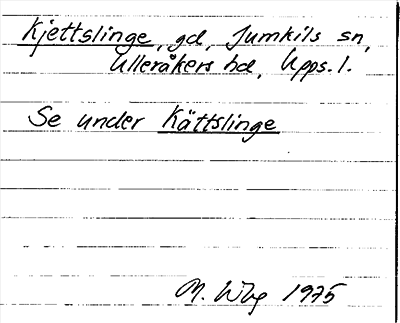 Kjettslinge, gd, Jumkils sn,
Ulleråkers hd, Upps. l.
Se under Kättslinge
M. Wbg 1975